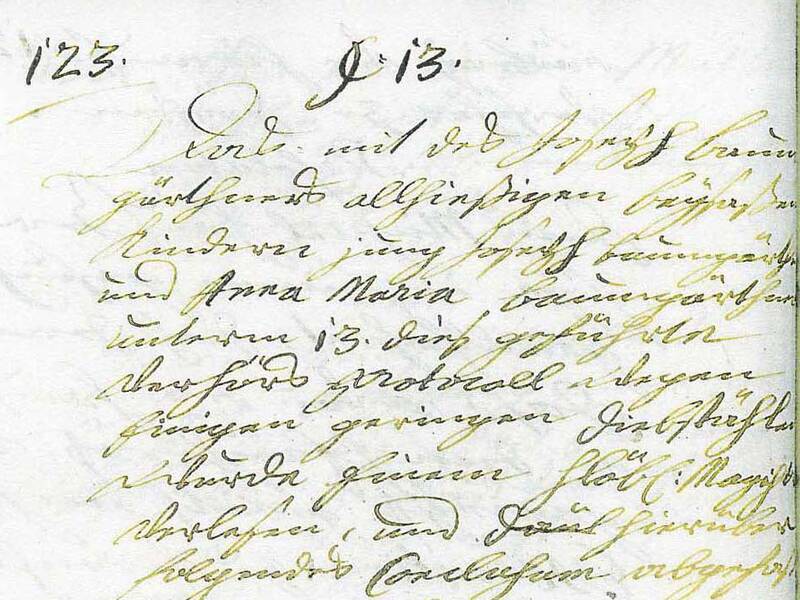 123. §: 13.
Das mit des Joseph baum
gärthners allhiesigen beysassen
Kindern jung Joseph baumgärth
und Anna Maria baumgärthner
unterm 13. dies geführte
Verhörs protocoll wegen
einigen geringen diebstähle
wurde einem Hlöbl: Magist
verlesen, und hierüber
folgendes Conclusum abgefas